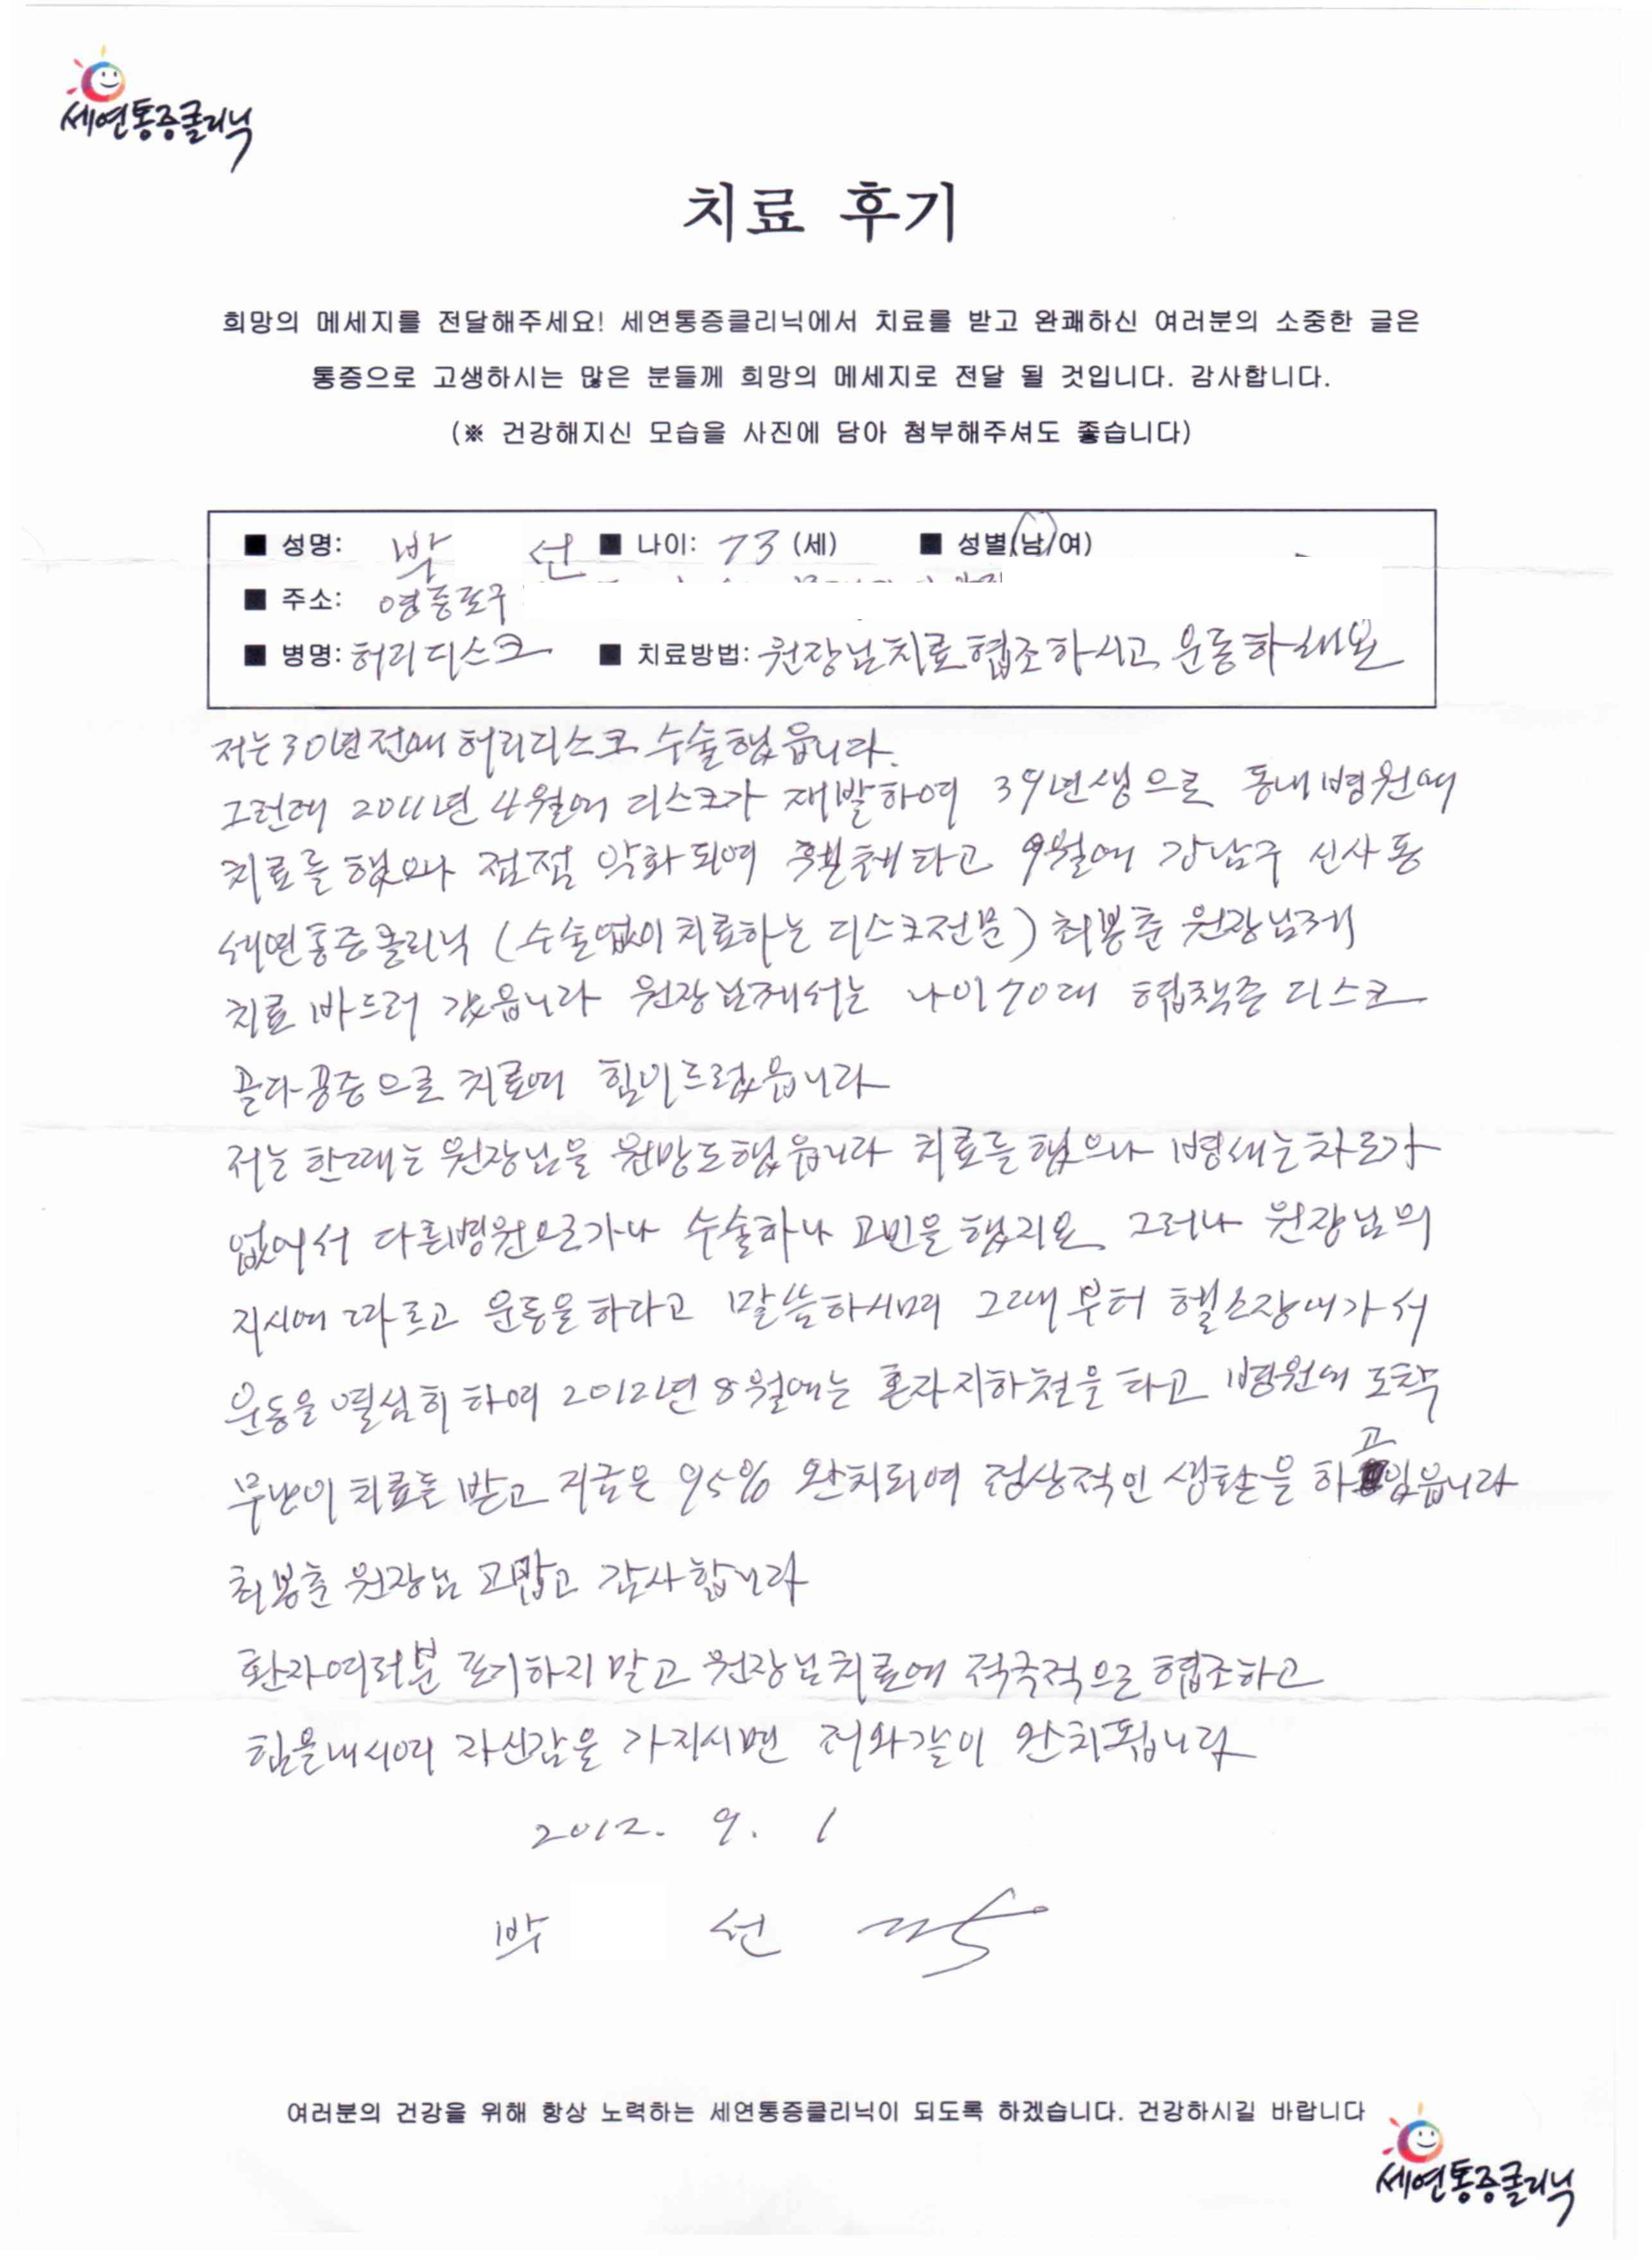 세연통증클리닉
치료 후기
희망의 메세지를 전달해주세요! 세연통증클리닉에서 치료를 받고 완쾌하신 여러분의 소중한 글은
통증으로 고생하시는 많은 분들께 희망의 메세지로 전달 될 것입니다. 감사합니다.
(※ 건강해지신 모습을 사진에 담아 첨부해주셔도 좋습니다)
■ 성명: 박 선 ■ 나이: 73 (세) ■ 성별(남/여)
■ 주소: 영등포구
■ 병명: 허리디스크 ■ 치료방법: 원장님치료협조하시고 운동하세요
저는 30년전에 허리디스크 수술했읍니다.
그런데 2011년 4월에 디스크가 재발하여 39년생으로 동내병원에
치료를 했으나 점점 악화되여 타고 9월에 강남구 신사동
세연통증클리닉 (수술없이 치료하는 디스크전문) 최봉춘 원장님께
치료 바드러 갔읍니다 원장님께서는 나이 70대 협착증 디스크
골다공증으로 치료에 힘이드렀읍니다
저는 한때는 원장님을 원망도했읍니다 치료를 했으나 병세는차도가
없어서 다른병원으로가나 수술하나 고민을 했지요 그러나 원장님의
지시에 따르고 운동을하라고 말씀하시며 그때부터 헬스장에가서
운동을 열심히 하여 2012년 8월에는 혼자지하철을 타고 병원에 도착
무난이 치료를 받고 지금은 95% 완치되여 정상적인 생활을 하고있읍니다
최봉춘 원장님 고맙고 감사합니다
환자여러분 포기하지 말고 원장님치료에 적극적으로 협조하고
힘을내시여 자신감을 가지시면 저와같이 완치됩니다
2012. 9. 1
박 선
여러분의 건강을 위해 항상 노력하는 세연통증클리닉이 되도록 하겠습니다. 건강하시길 바랍니다
세연통증클리닉